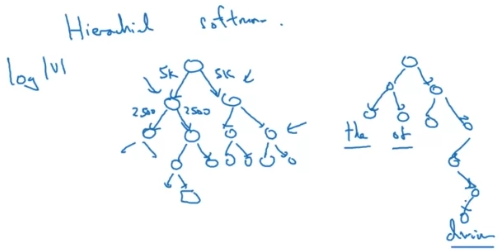 Hierarchial softmax.
log |V|
5K 5K
2500 2500
the of
durian